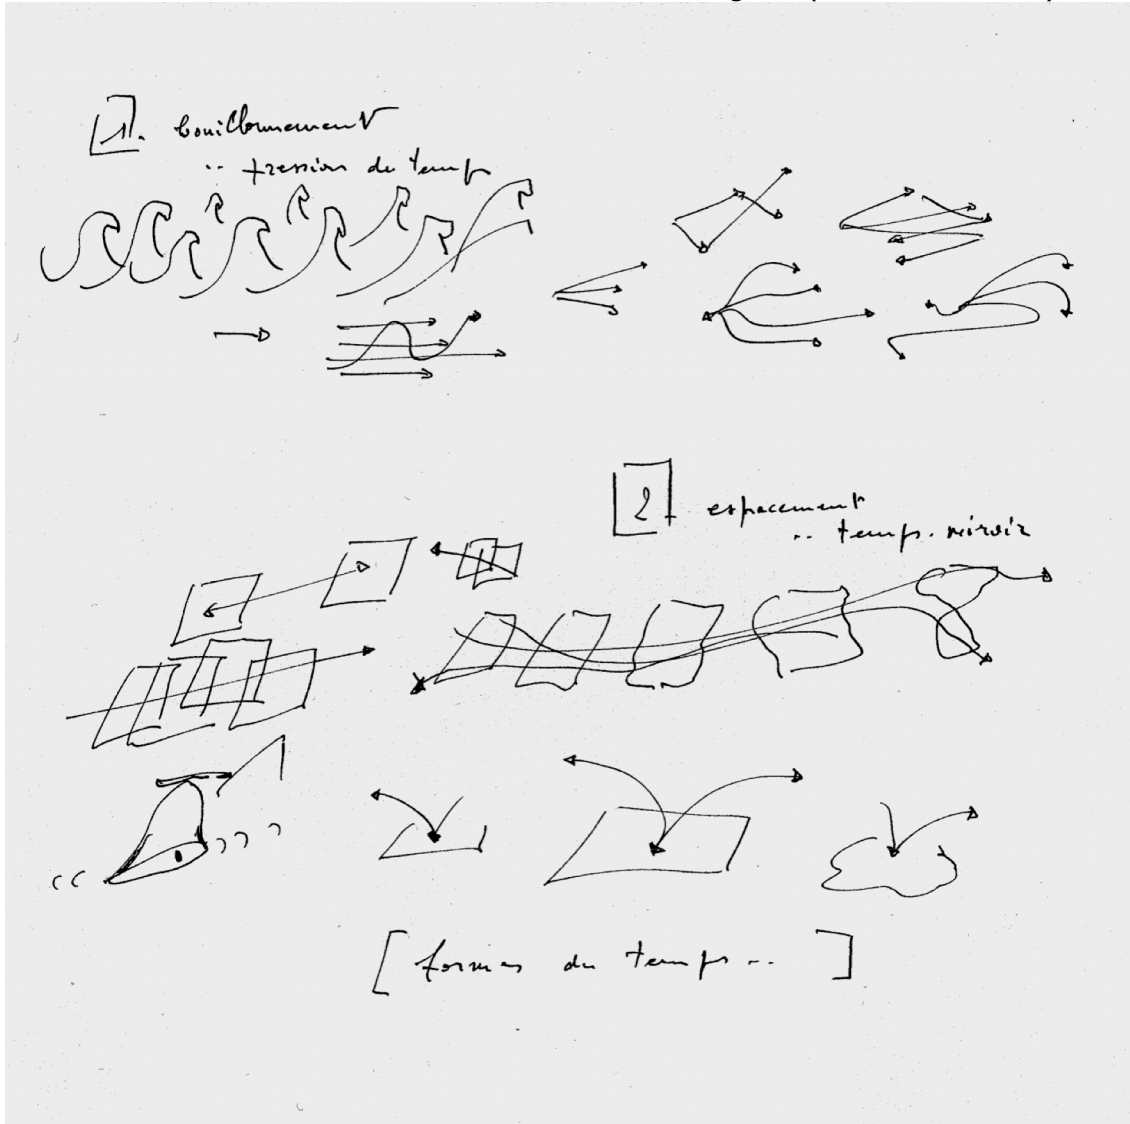 1. bouillonnement
.. tression du temps
2 espacement
.. temps. miroir
[ formes du temps .. ]